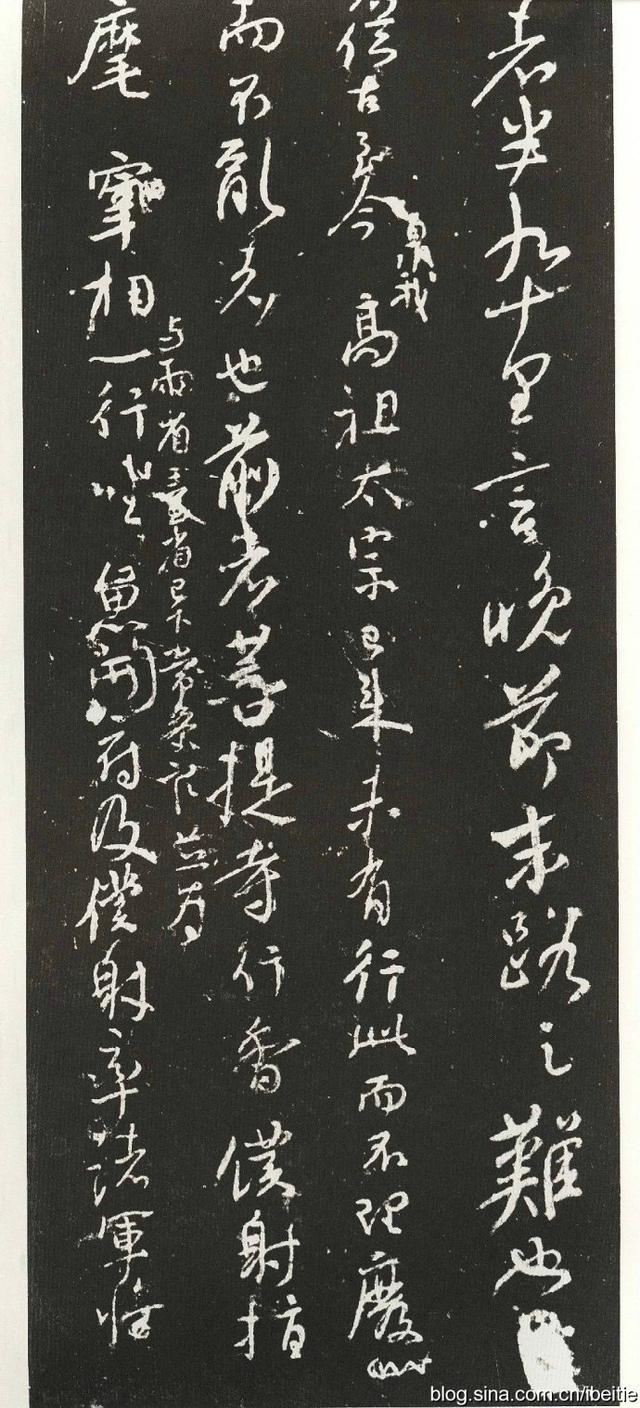 者半九十里言晚節末路之難也
從古至今高祖太宗已來未有行此而不理廢
暨我
而不亂者也前者菩提寺行香僕射指
与兩省臺省已下常參官並為
麾宰相一行坐魚開府及僕射率諸軍將
blog.sina.com.cn/ibeitie